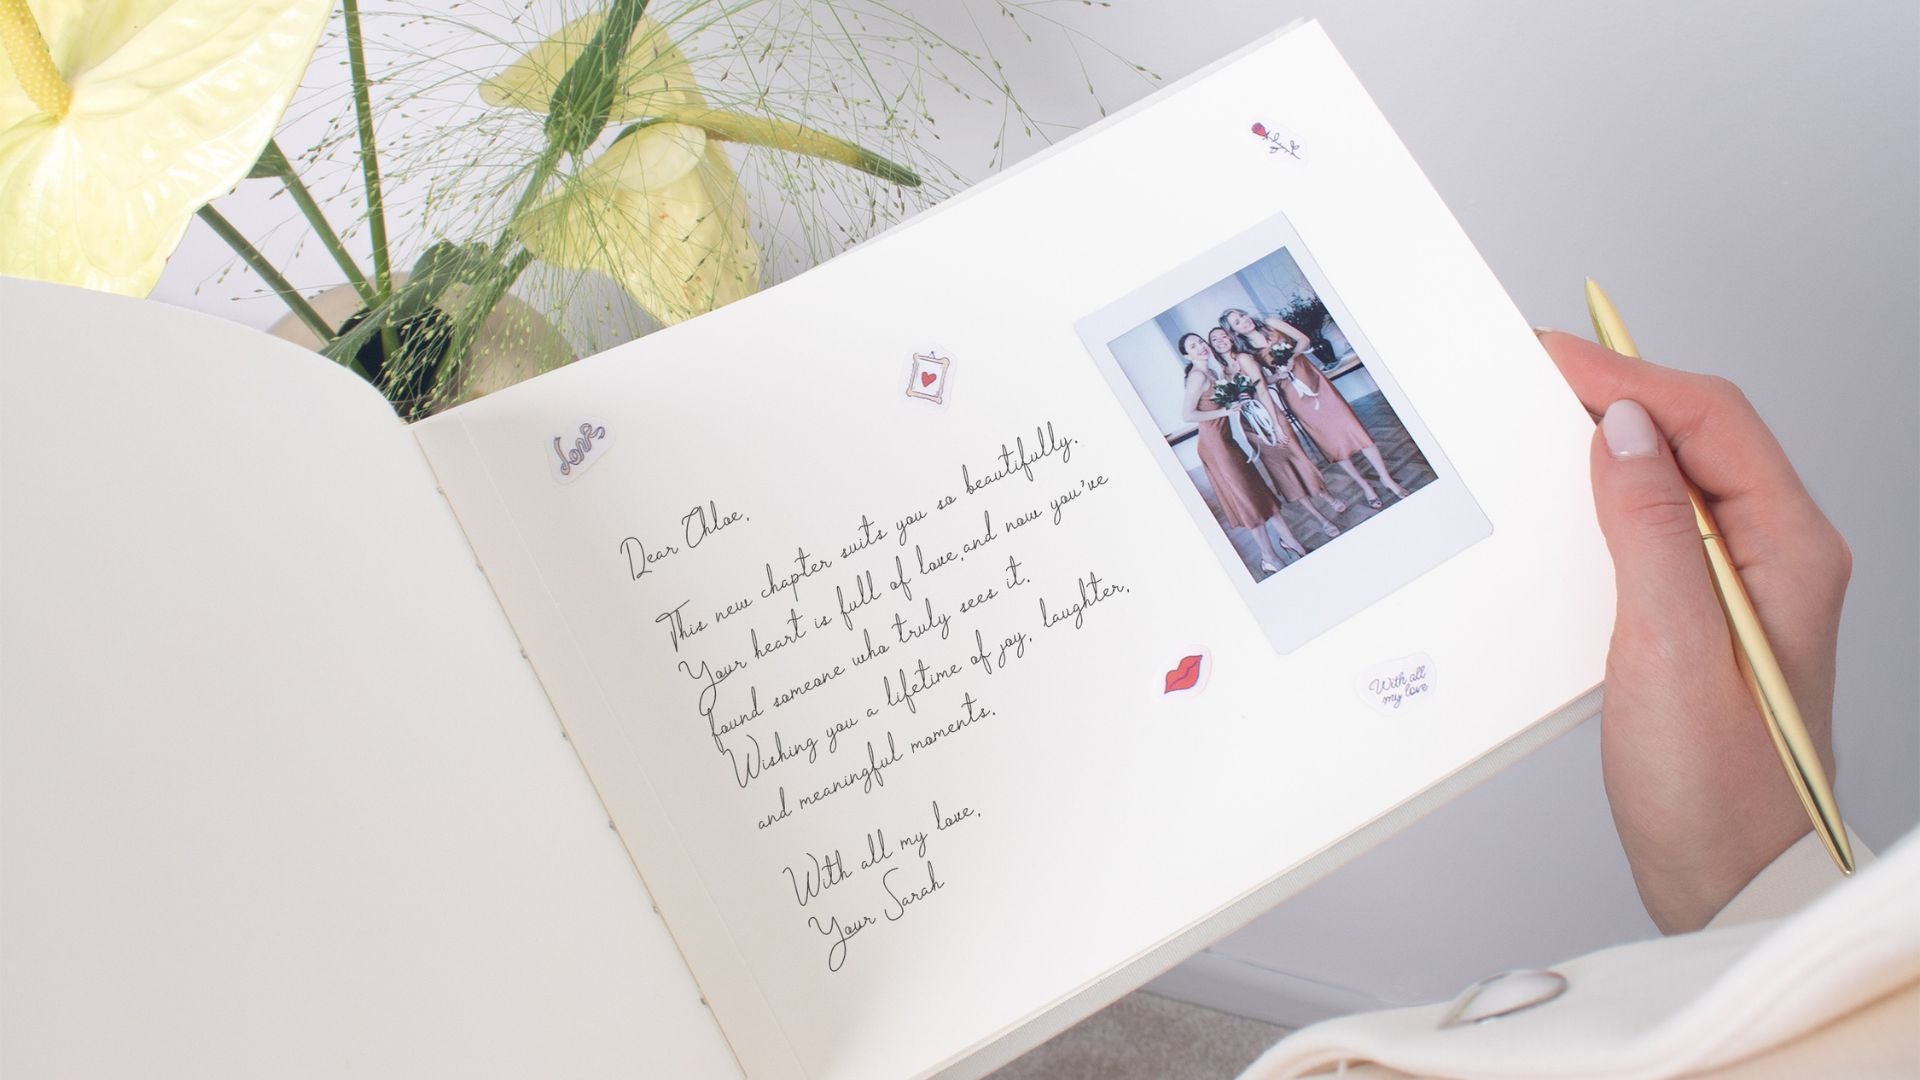 Love
Dear Chloe,
This new chapter suits you so beautifully.
Your heart is full of love, and now you've
found someone who truly sees it.
Wishing you a lifetime of joy, laughter,
and meaningful moments.
With all my love,
Your Sarah
With all
my love